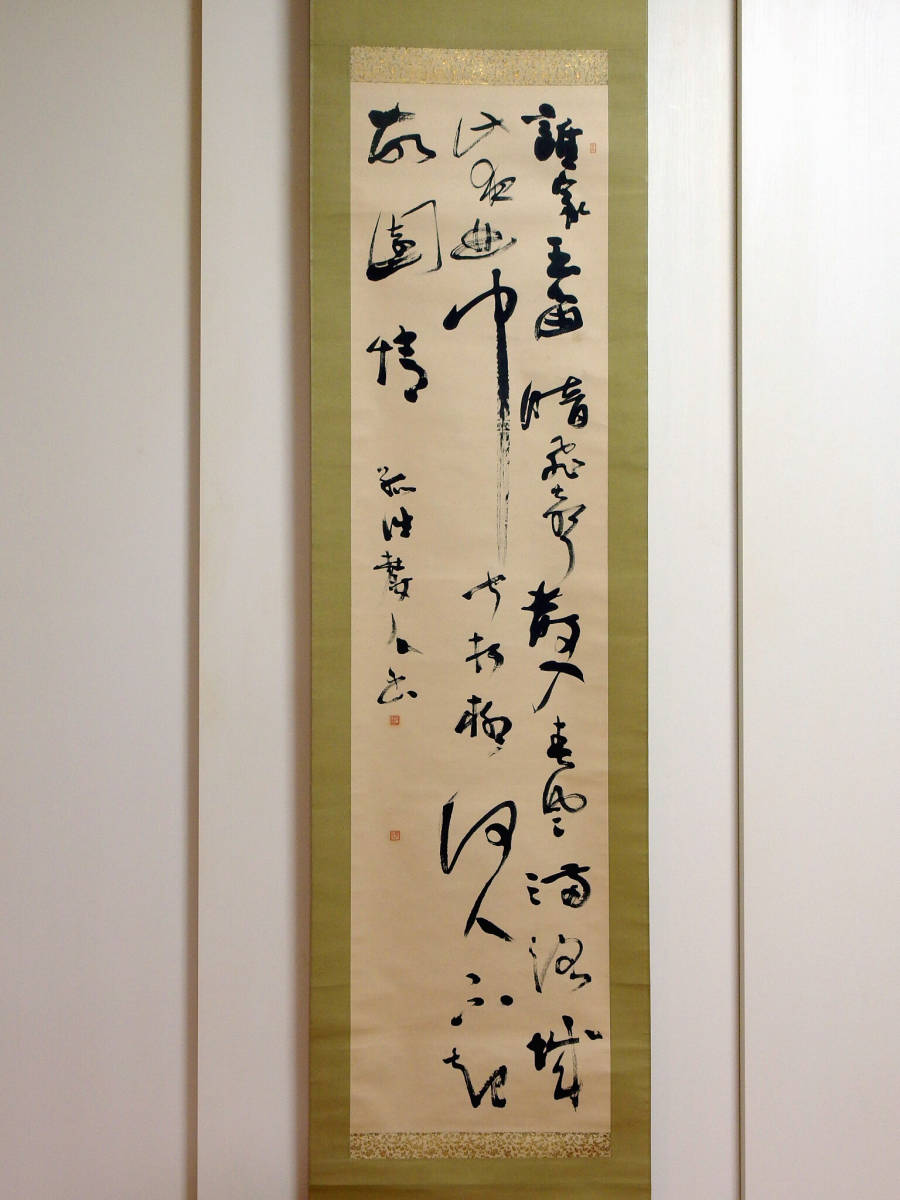 誰家玉笛暗飛聲散入春風滿洛城
此夜曲中聞折柳何人不起
故園情 人書